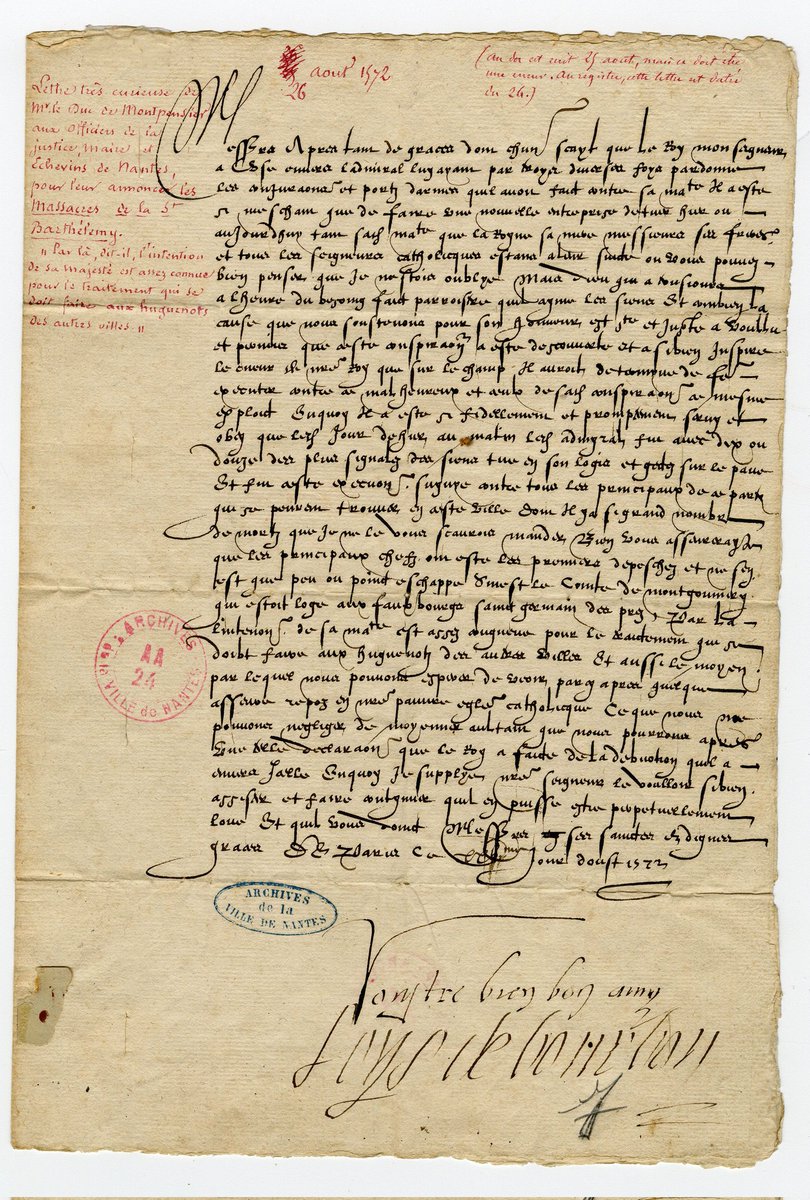 26 août 1572
(au dos est écrit 25 août, mais ce doit être
une erreur. Au registre, cette lettre est datée
du 26.)
Lettre très curieuse de
Mr. le Duc de Montpensier
aux Officiers de la
justice, Maire et
Echevins de Nantes,
pour leur annoncer les
Massacres de la St
Barthélemy.
" Par là, dit-il, l'intention
de sa majesté est assez connue
pour le traitement qui se
doit faire aux huguenots
des autres villes. "
Messrs Apres tant de graces dont chun scayt que le Roy mon seigneur
a use envers ladmiral luy ayant par troys diverses foys pardonne
les conjuraons et portz darmes quil avoit fait contre sa mate Il a este
si meschant que de faire une nouvelle entreprise de tuer hier ou
aujourdhuy tant sad mate que la Royne sa mere messieurs ses freres
et tous les seigneurs catholicques estans a leur suicte ou vous pouvez
bien penser que je nestois oublye Mais dieu qui a tousiours
a lheure du besoing faict parroistre quil ayme les siens Et combien la
cause que nous soustenons pour son honneur est ste et juste a voullu
et permis que ceste conspiraon a este descouverte et a si bien inspire
le cueur de nre Roy que sur le champ Il auroit determine de fe
executer contre ce malheureux et ceulx de sad conspiraon ce mesme
exploit Enquoy Il a este si fidellement et promptement servy et
obey que led jour dhier au matin led admiral fut avec dix ou
douze des plus signalez des siens tue en son logis et gecte sur le pave
Et fut ceste execuon suyvye contre tous les principaux de ce party
qui se peurent trouver en ceste ville dont Il y a si grand nombre
de mortz que je ne le vous scaurois mander Bien vous asseureray je
que les principaux chefz ont este les premiers depeschez et ne sen
est que peu ou point eschappe Sinest le Comte de montgommery
qui estoit loge aux faulxbourgs sainct germain des prez Par la
lintenon de sa mate est assez congneue pour le traictement qui se
doibt faire aux huguenotz des autres villes Et aussi le moyen
par lequel nous pouvons esperer de veoir par cy apres quelque
asseure repoz en nre pauvre eglise catholicque Ce que nous ne
pouvons negliger de moyenner aultant que nous pourrons apres
une telle declaraon que le Roy a faicte de la devotion quil a
envers Icelle Enquoy Je supplye nre seigneur le voulloir si bien
assister et faire continuer quil en puisse estre perpetuellement
loue Et quil vous doint Messrs ses sainctes et dignes
graces De Paris Ce jour daoust 1572
Vonstre bien bon amy
Loys de bourbon
ARCHIVES
AA
24
de la VILLE de NANTES
ARCHIVES
de la
VILLE DE NANTES